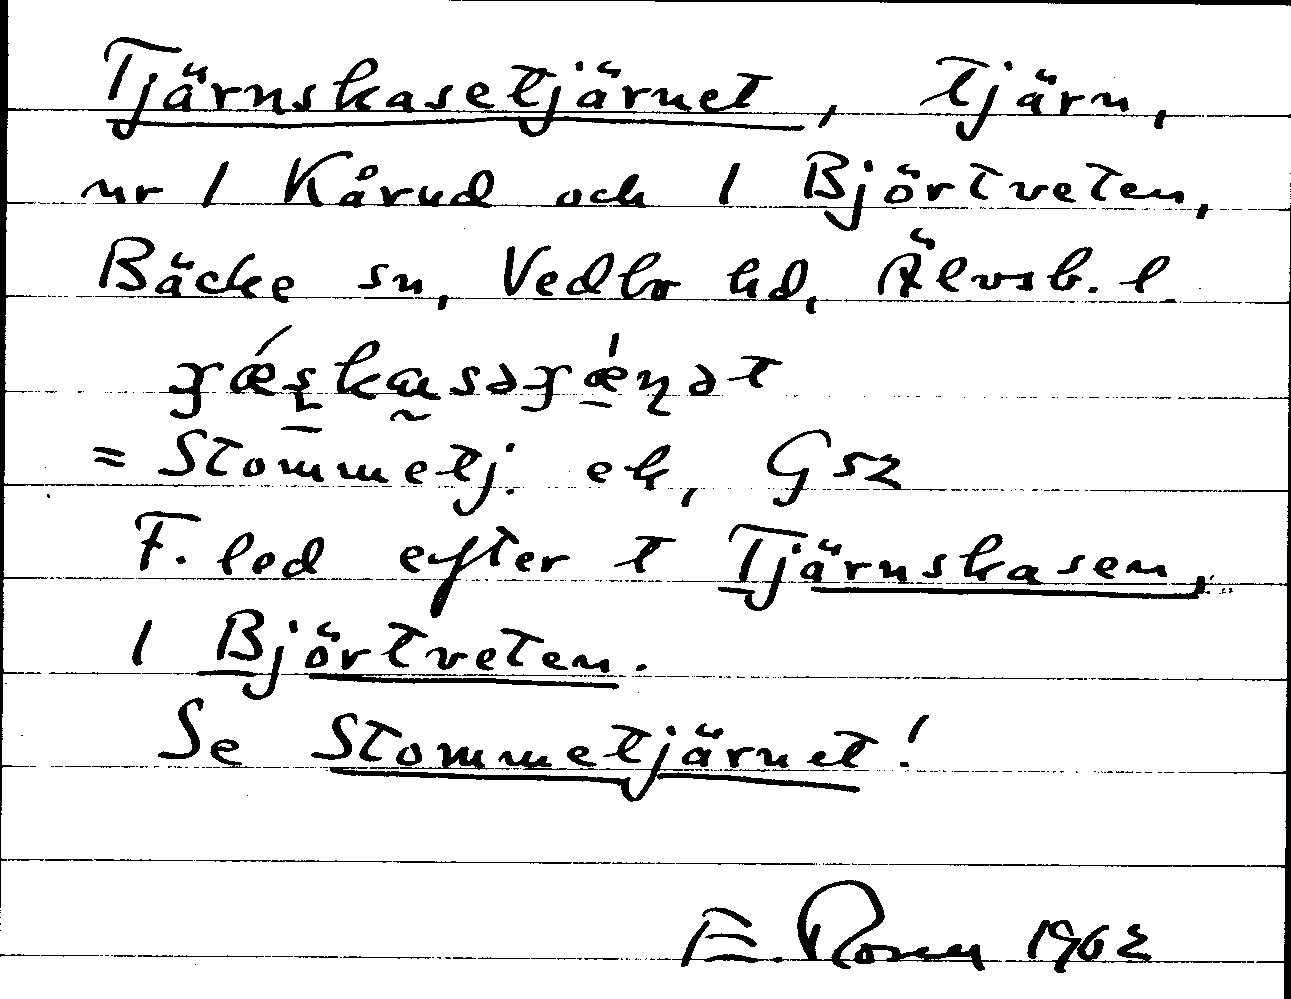 Tjärnskasetjärnet, tjärn,
nr 1 Kårud och 1 Björtveten,
Bäcke sn, Vedbo hd, Älvsb. l.
= Stommetj. ek, G52
F. led efter t Tjärnskasen,
1 Björtveten.
Se Stommetjärnet!
E. Rosen 1962